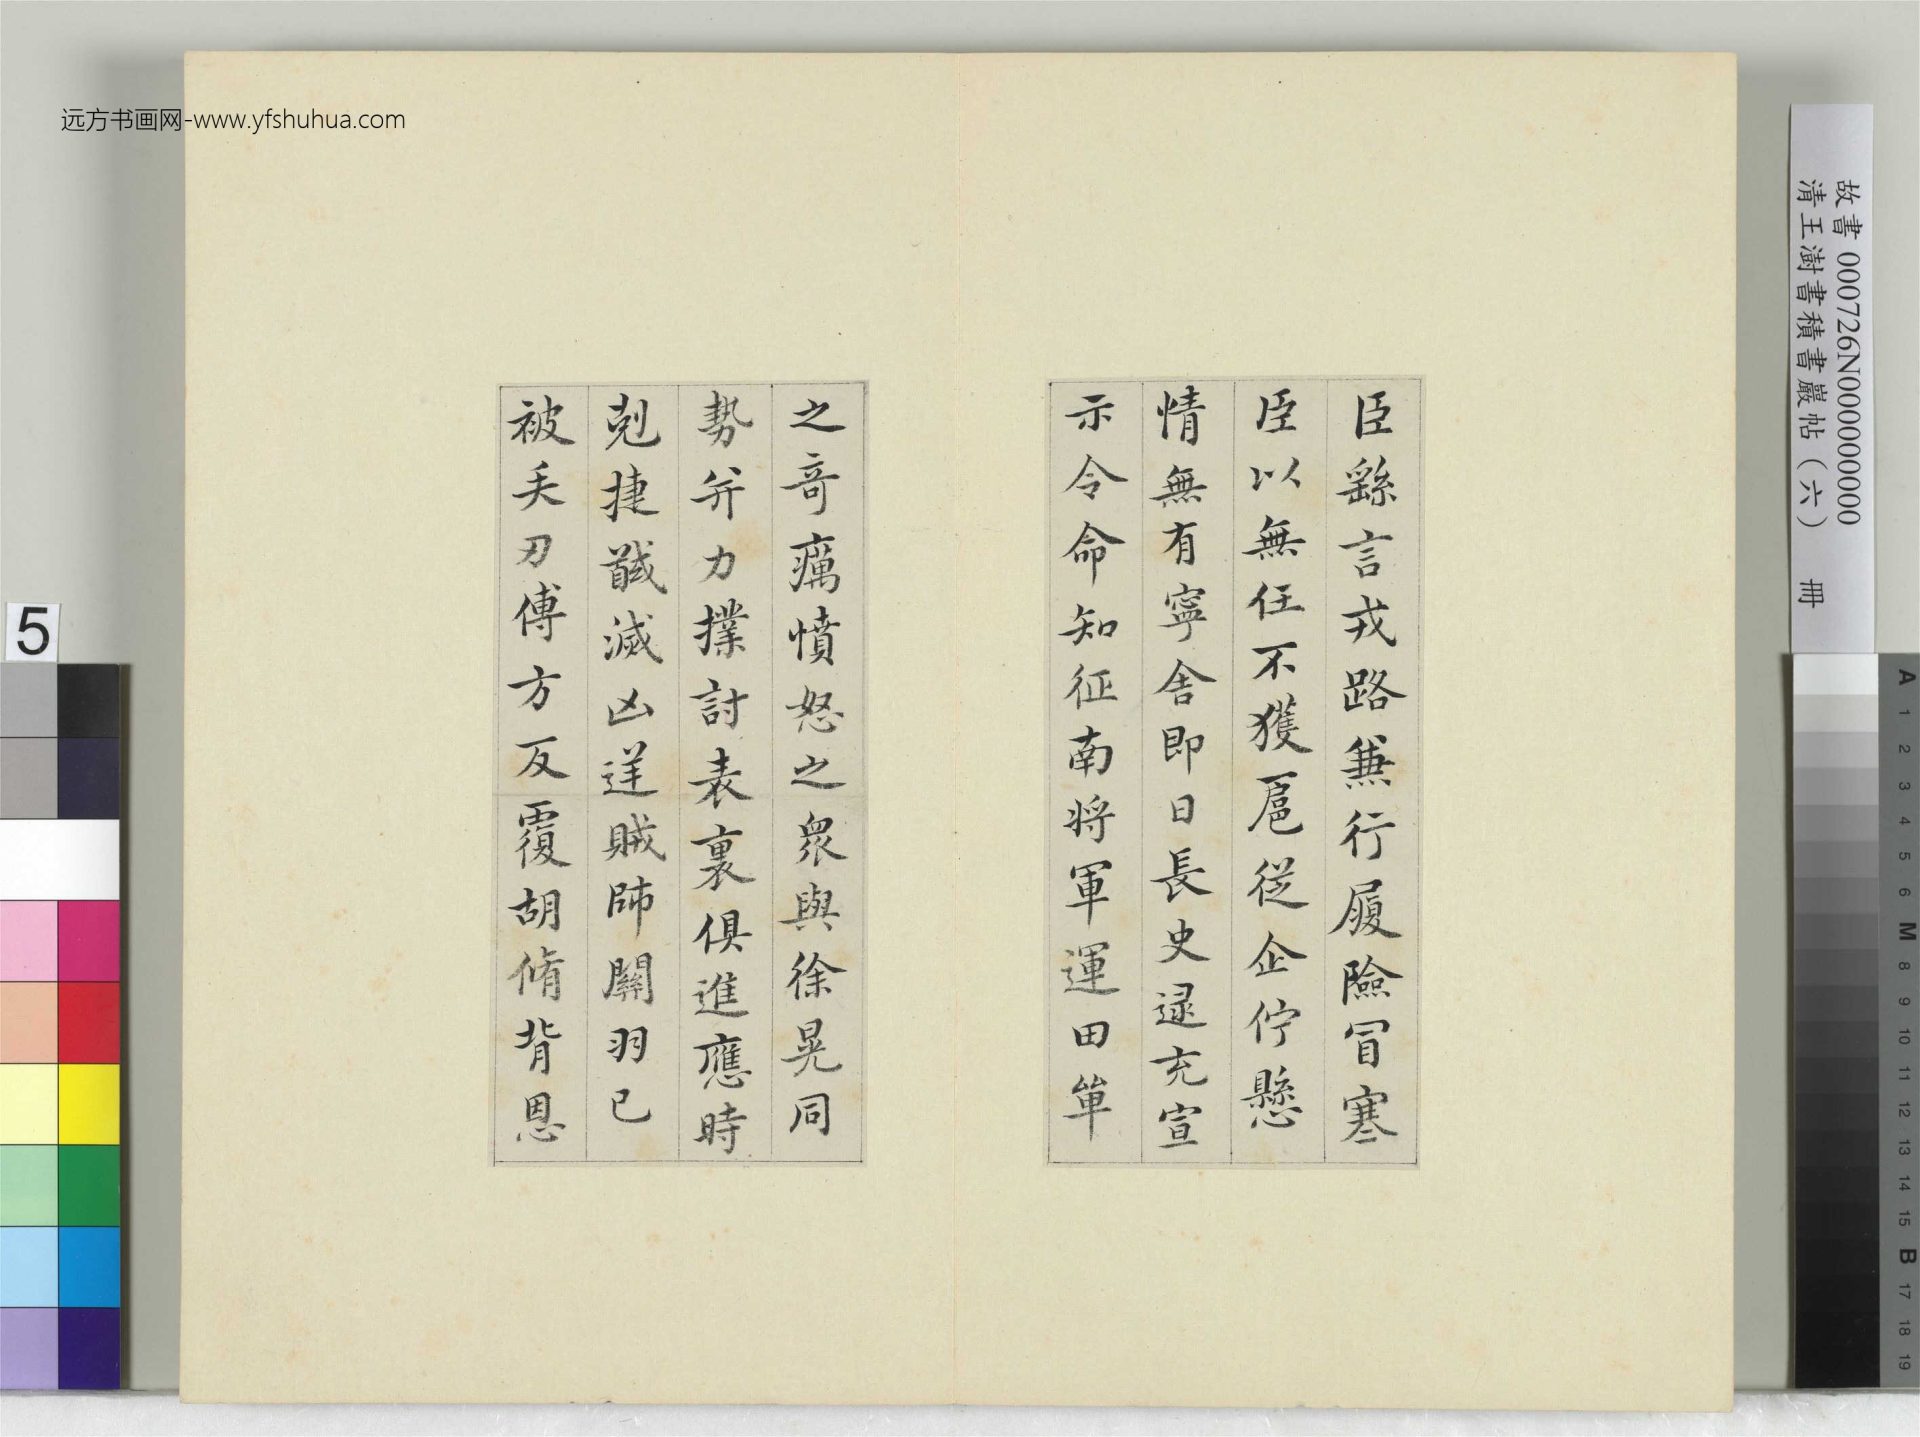 臣繇言戎路兼行履險冒寒
臣以無任不獲扈從企佇懸
情無有寧舍即日長史逯充宣
示令命知征南將軍運田單
之奇厲憤怒之眾與徐晃同
勢并力撲討表裏俱進應時
剋捷馘滅凶逆賊帥關羽已
被手刃傅方反覆胡脩背恩
远方书画网-www.yfshuhua.com
故書 000726N000000000
清王澍書積書巖帖（六） 冊
5
A
1
2
3
4
5
6
M
8
9
10
11
12
13
14
15
B
17
18
19